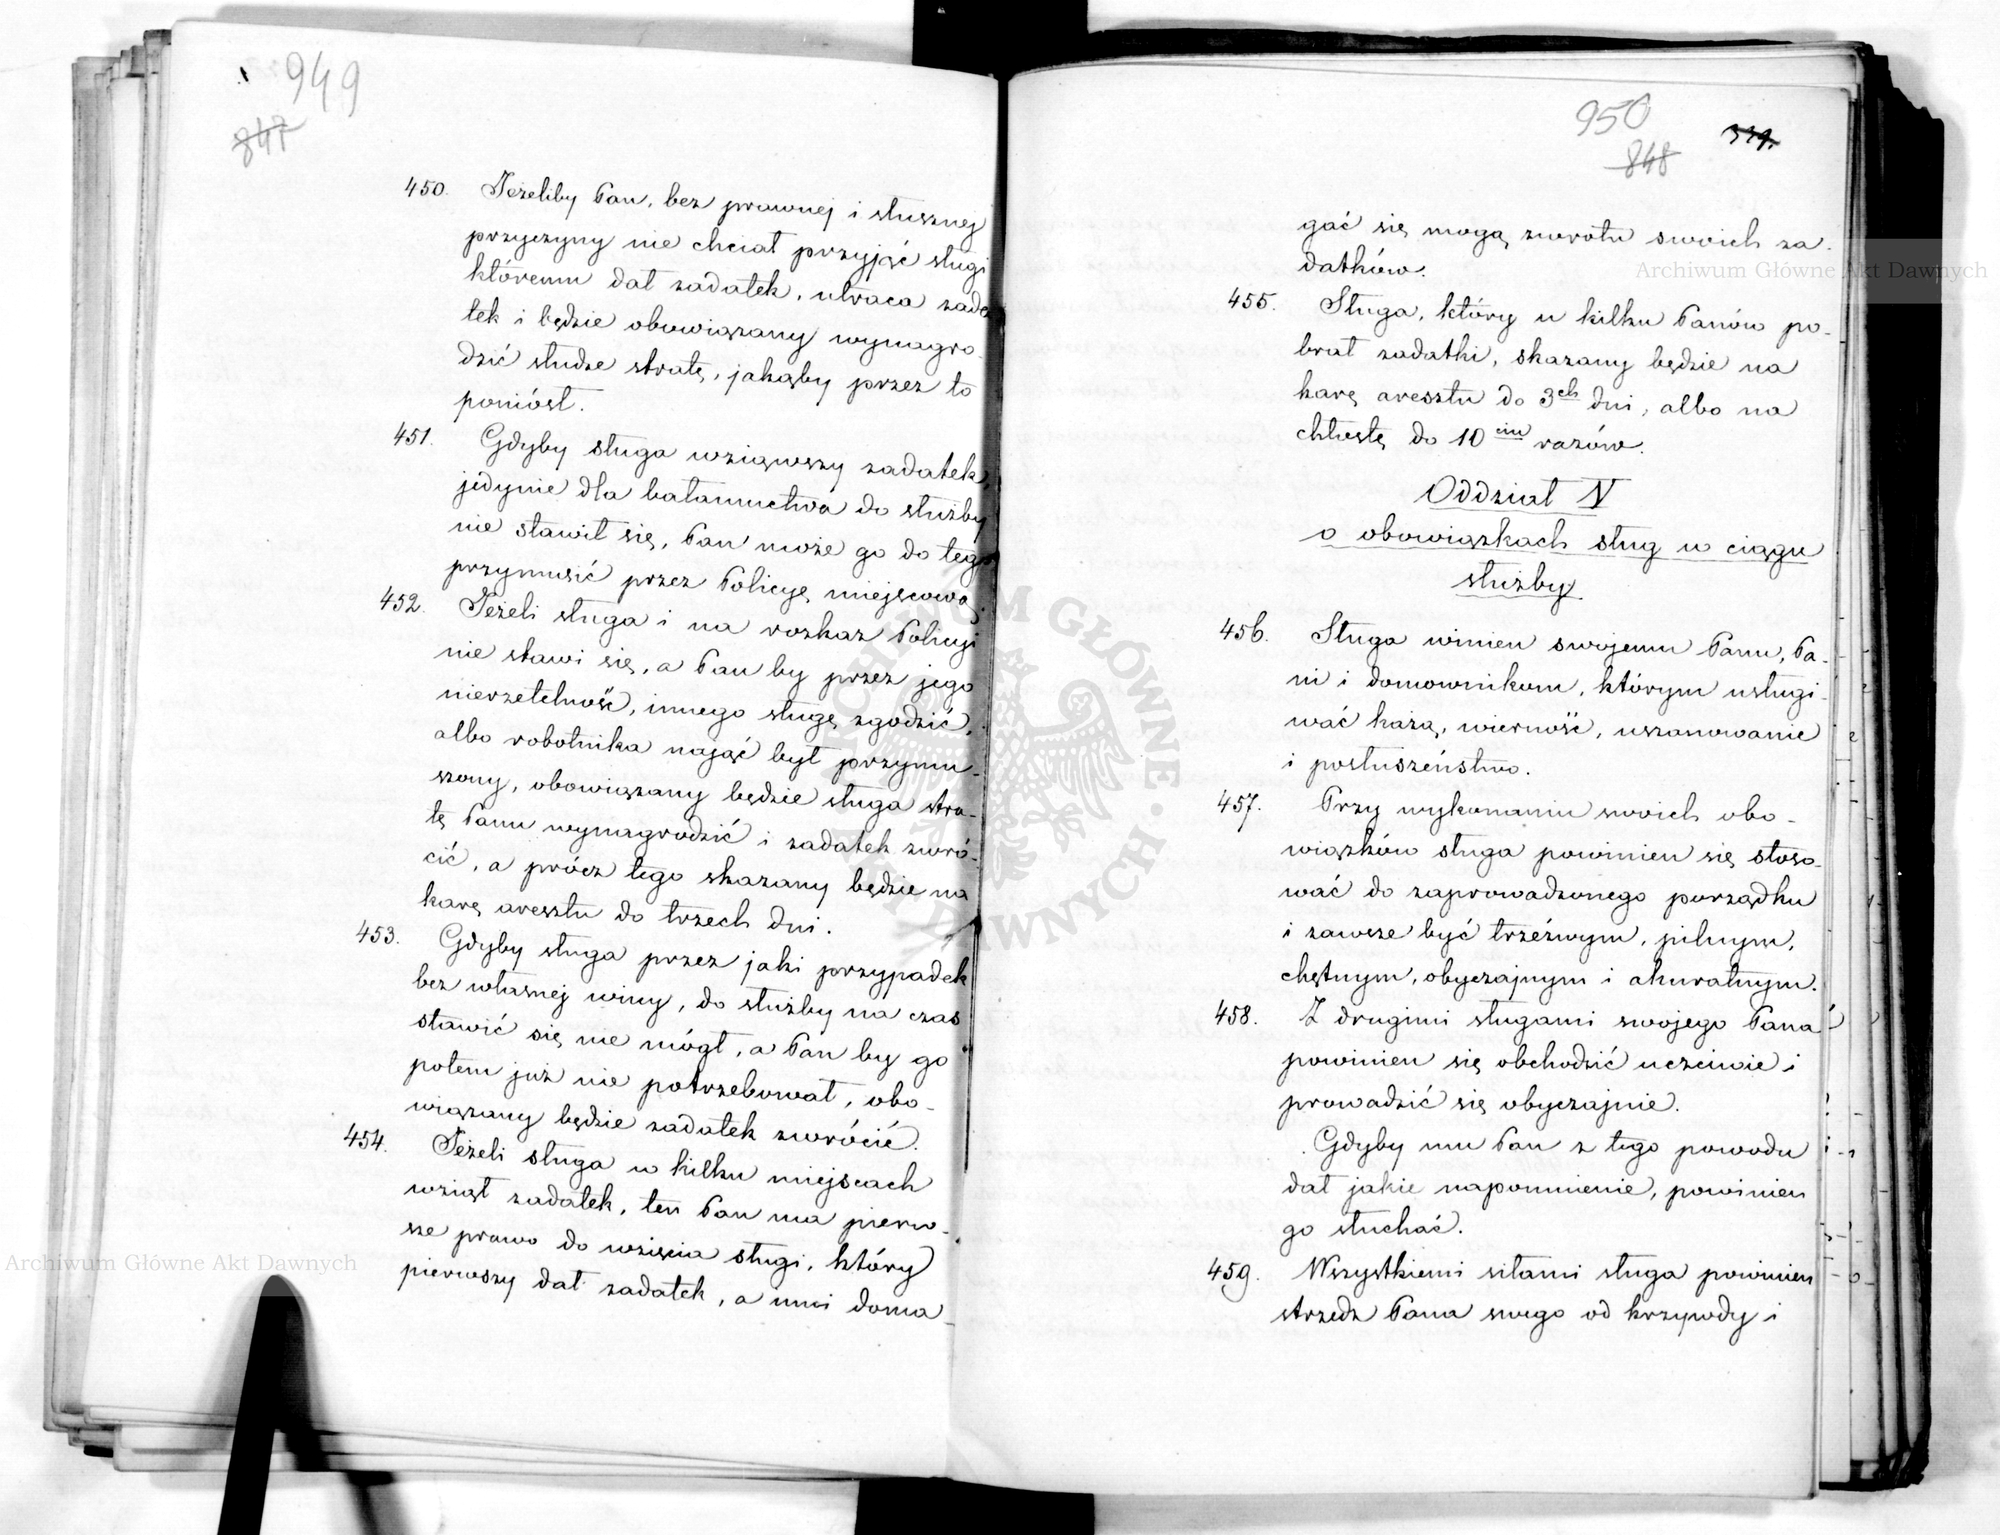 949
847
450. Jeżeliby Pan, bez prawnej i słusznej
przyczyny nie chciał przyjąć sługi
któremu dał zadatek, utraca zada
tek i będzie obowiązany wynagro-
dzić słudze stratę, jakąby przez to
poniósł.
451. Gdyby sługa wziąwszy zadatek,
jedynie dla bałamuctwa do służby
nie stawił się, Pan może go do tego
przymusić przez Policyę miejscową.
452. Jeżeli sługa i na rozkaz Policyi
nie stawi się, a Pan by przez jego
nierzetelność, innego sługę zgodzić,
albo robotnika nająć był przymu-
szony, obowiązany będzie sługa stra-
tę Panu wynagrodzić i zadatek zwró-
cić, a prócz tego skazany będzie na
karę aresztu do trzech dni.
453. Gdyby sługa przez jaki przypadek
bez własnej winy, do służby na czas
stawić się nie mógł, a Pan by go
potem już nie potrzebował, obo-
wiązany będzie zadatek zwrócić.
454. Jeżeli sługa w kilku miejscach
wziął zadatek, ten Pan ma pierw-
sze prawo do wzięcia sługi, który
pierwszy dał zadatek, a inni doma-
950
848
339.
gać się mogą zwrotu swoich za-
datków.
455. Sługa, który u kilku Panów po-
brał zadatki, skazany będzie na
karę aresztu do 3ch dni, albo na
chłostę do 10ciu razów.
Oddział V
o obowiązkach sług w ciągu
służby.
456. Sługa winien swojemu Panu, Pa-
ni i domownikom, którym usługi-
wać każą, wierność, uszanowanie
i posłuszeństwo.
457. Przy wykonaniu swoich obo-
wiązków sługa powinien się stoso-
wać do zaprowadzonego porządku
i zawsze być trzeźwym, pilnym,
chętnym, obyczajnym i akuratnym.
458. Z drugimi sługami swojego Pana
powinien się obchodzić uczciwie i
prowadzić się obyczajnie.
Gdyby mu Pan z tego powodu
dał jakie napomnienie, powinien
go słuchać.
459. Wszystkiemi siłami sługa powinien
strzedz Pana swego od krzywdy i
Archiwum Główne Akt Dawnych
Archiwum Główne Akt Dawnych
ARCHIWUM GŁÓWNE AKT DAWNYCH